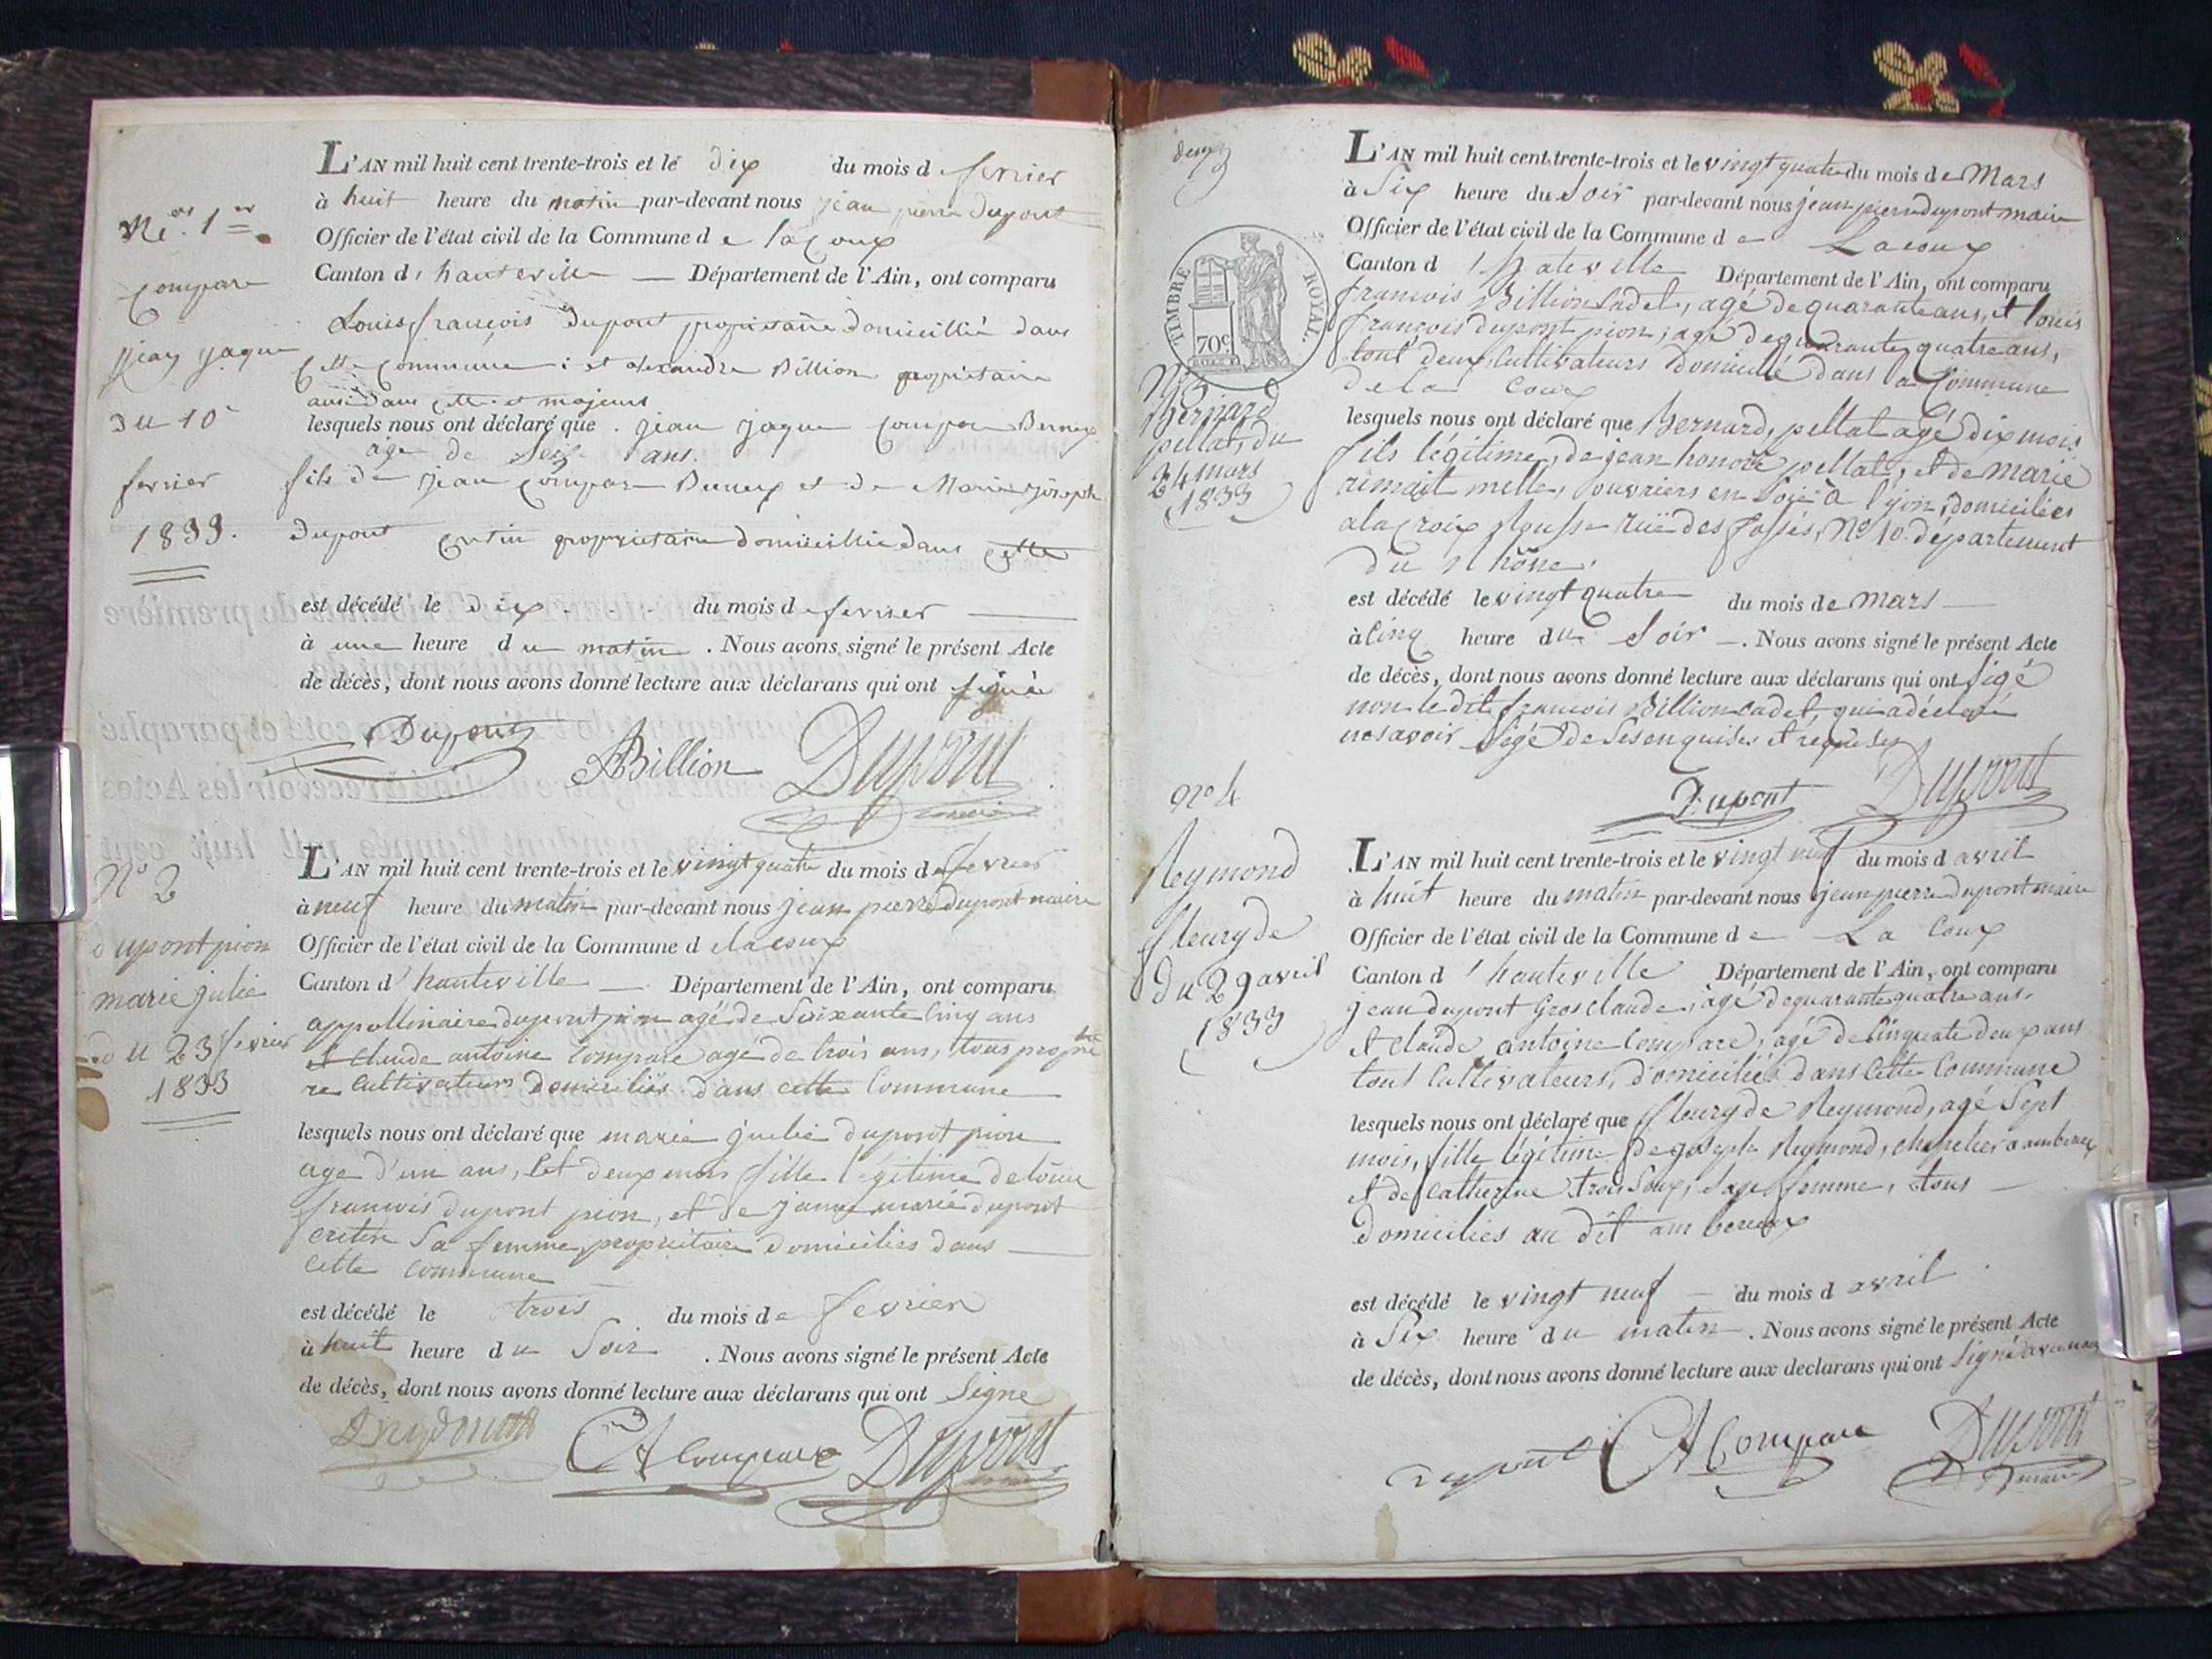 Nos. 1er
compare
jean jaque
du 10
fevrier
1833.
L'AN mil huit cent trente-trois et le dix du mois d e fevrier
à huit heure du matin par-devant nous jean pierre Dupont
Officier de l'état civil de la Commune d e lacoux
Canton d' hauteville — Département de l'Ain, ont comparu
Louis françois Dupont propriétaire domicillié dans
cette commune : et alexandre Billion propriétaire
aussi dans cette et majeurs
lesquels nous ont déclaré que jean jaque compare
age de ans.
fils de jean compare et de Marie joseph
Dupont cretin propriétaire domicillié dans cette
est décédé le dix du mois d e fevrier
à une heure d u matin . Nous avons signé le présent Acte
de décès, dont nous avons donné lecture aux déclarans qui ont signé
Dupont ABillion Dupont
maire
N° 2
dupont pion
marie julie
du 23 fevrier
1833
L'AN mil huit cent trente-trois et le vingt quatre du mois d e fevrier
à neuf heure du matin par-devant nous jean pierre dupont maire
Officier de l'état civil de la Commune d e lacoux
Canton d' hauteville — Département de l'Ain, ont comparu
appollinaire dupont pion agé de Soixante cinq ans
et Claude antoine Compare agé de trois ans, tous
re Cultivateurs domiciliés dans cette Commune
lesquels nous ont déclaré que marie julie dupont pion
age d'un ans, et deux mois fille légitime de louis
francois dupont pion, et de janne marie dupont
cretin Sa femme, propriétaire domiciliés dans
cette commune
est décédé le trois du mois d e fevrier
à huit heure d u Soir . Nous avons signé le présent Acte
de décès, dont nous avons donné lecture aux déclarans qui ont Signé
Dupont CA Compare Dupont
maire
deux
TIMBRE ROYAL.
70c
N° 3
Bernard
pellat, du
24 mars
1833
L'AN mil huit cent trente-trois et le vingt quatre du mois d e Mars
à Six heure du Soir par-devant nous jean pierre dupont maire
Officier de l'état civil de la Commune d e Lacoux
Canton d' hateville Département de l'Ain, ont comparu
francois Billion Cadet, agé de quarante ans, et louis
françois dupont pion, agé de quarante quatre ans,
tout deux Cultivateurs Domicilié dans la Commune
de la Coux
lesquels nous ont déclaré que Bernard, pellat agé dix mois
fils légitime, de jean honoré pellat, et de marie
melle, ouvriers en Soie à lyon, domiciliées
a la croix Rousse rue des fossés, N° 10. département
du Rhône.
est décédé le vingt quatre du mois de mars —
à cinq heure du Soir —. Nous avons signé le présent Acte
de décès, dont nous avons donné lecture aux déclarans qui ont sigé
non le dit francois Billion Cadet, qui a déclaré
ne savoir sigé de Ses enquises et requises
Dupont Dupont
N° 4
Reymond
fleuryde
du 29 avril
1833
L'AN mil huit cent trente-trois et le vingt neuf du mois d avril
à huit heure du matin par-devant nous jean pierre dupont maire
Officier de l'état civil de la Commune d e La Coux
Canton d' hauteville Département de l'Ain, ont comparu
jean dupont Gros claude, agé de quarante quatre ans.
et claude antoine Compare, agé de Cinquante deux ans
tout Cultivateurs, domiciliés dans Cette Commune
lesquels nous ont déclaré que fleuryde Reymond, agé Sept
mois, fille légitime de joseph Reymond, chapelier a
et de Catherine Sage femme, tous —
domiciliés au dit
est décédé le vingt neuf — du mois d avril
à Six heure d u matin . Nous avons signé le présent Acte
de décès, dont nous avons donné lecture aux declarans qui ont Signé avec nous
dupont CA Compare Dupont
maire